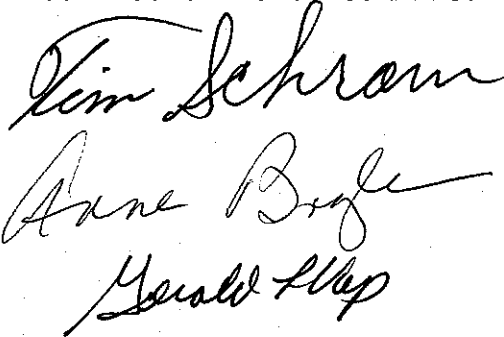 Tim Schram
Anne Boyle
Gerald